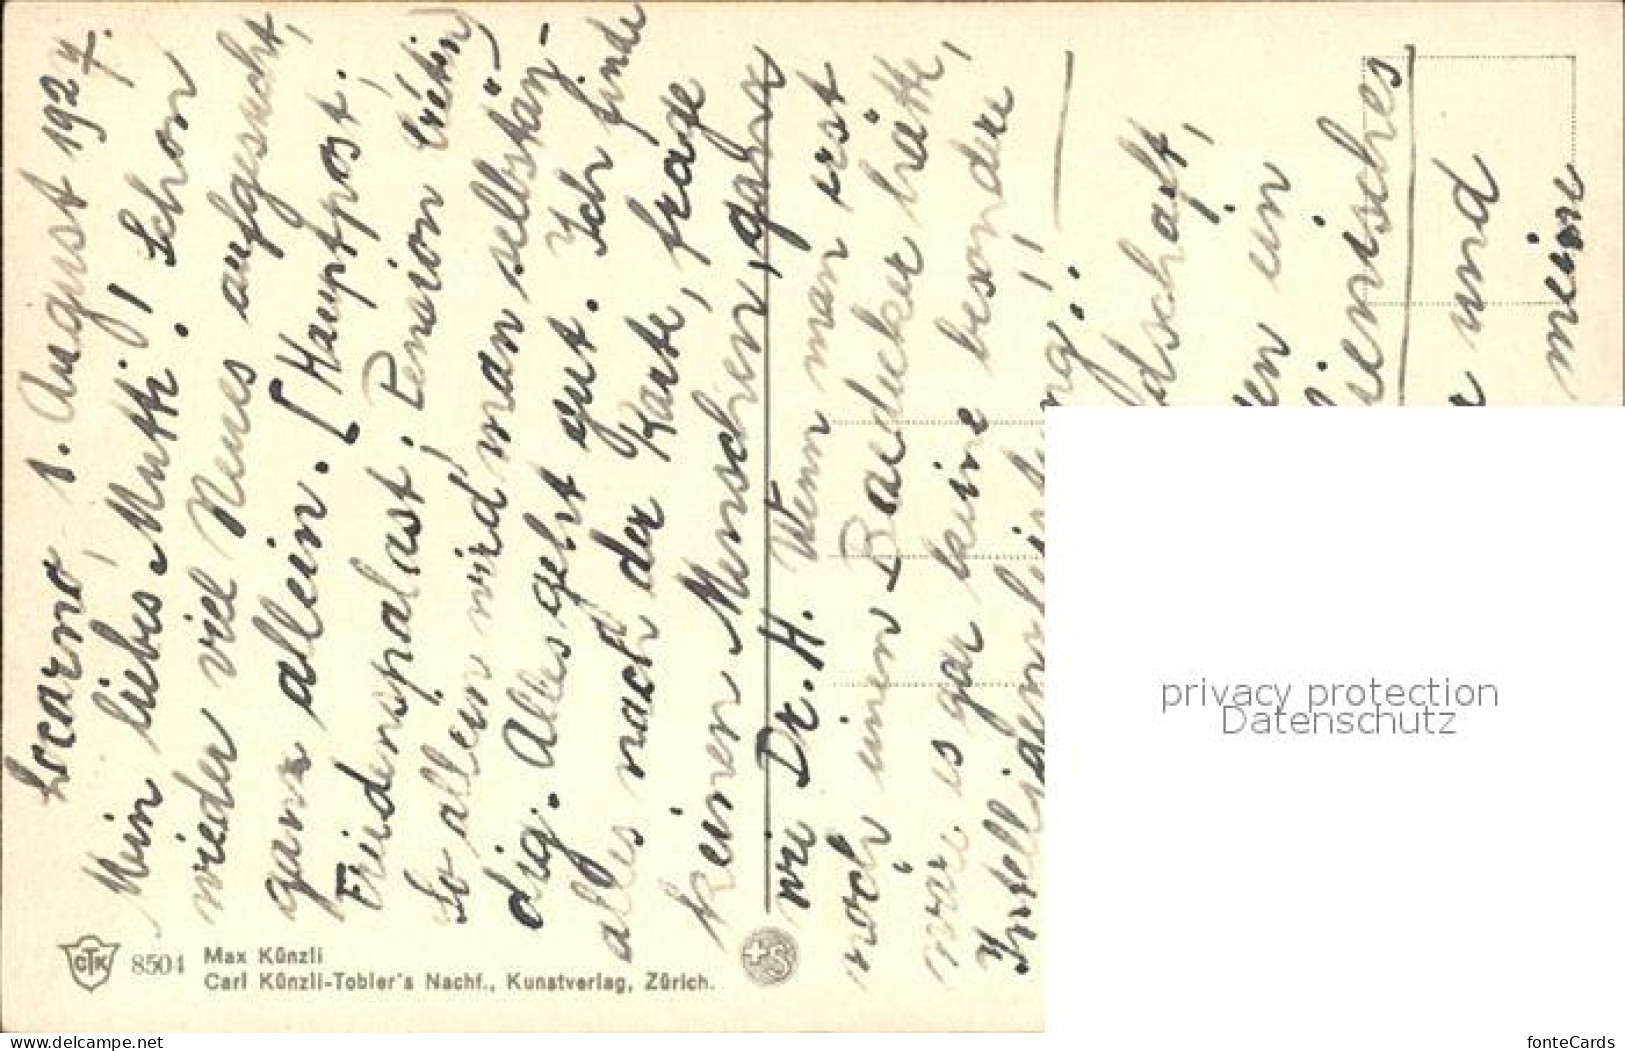 Locarno, 1. August 1927.
Mein liebes Mutti! Schon
wieder viel Neues aufgesucht,
ganz allein. [Hauptpost,
Friedenspalast; Pension
So allein wird man selbstän-
dig. Alles geht gut. Ich finde
alles nach der Karte, frage
keinen Menschen, ganz
wie Dr. H. Wenn man erst
noch einen Baedecker hätte,
wäre es gar keine besondere
Intelligenzleistung!!
dschaft,
en ein
ienisches
und
meine
CTK 8504 Max Künzli
Carl Künzli-Tobler's Nachf., Kunstverlag, Zürich.
privacy protection
Datenschutz
www.delcampe.net
fonteCards